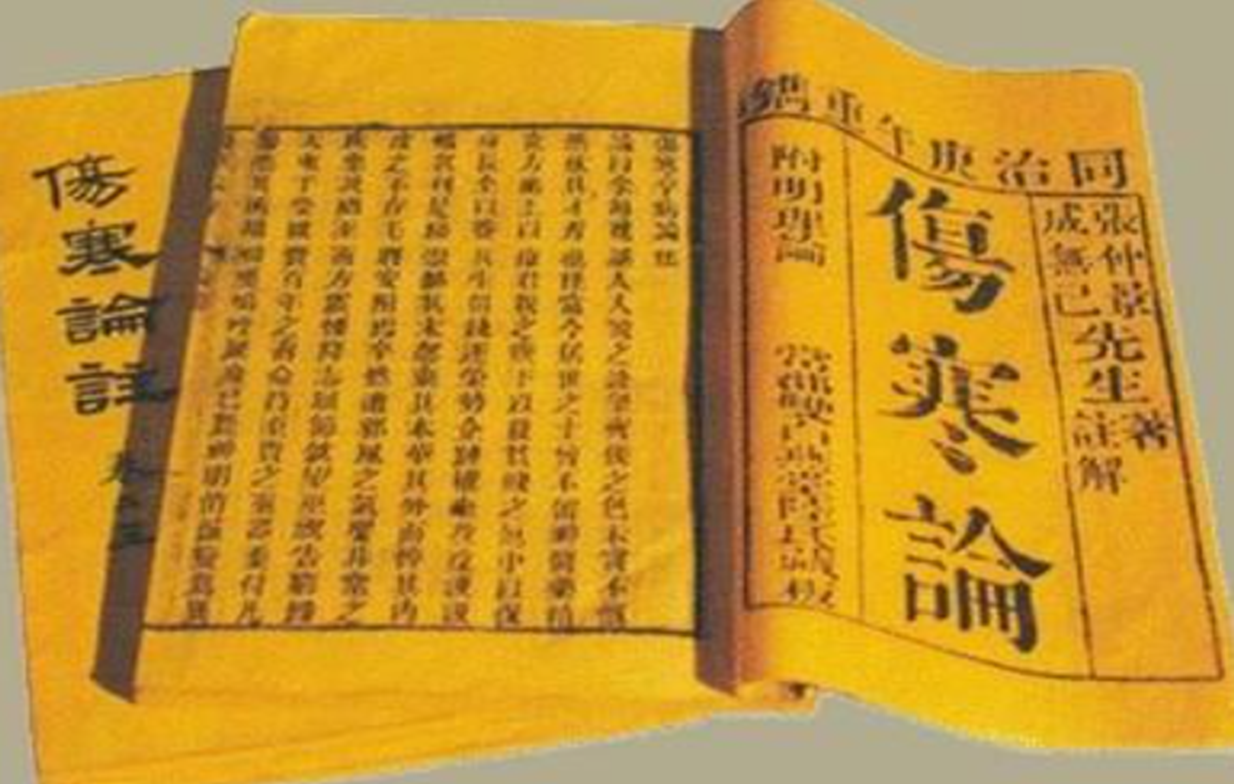 同治庚午重鐫
張仲景先生著
成無己註解
傷寒論
附明理論
常郡雙白燕堂陸氏藏板
傷寒卒病論
論曰余每覽越人入虢之診望齊侯之色未嘗不慨
然歎其才秀也怪當今居世之士曾不留神醫藥精
究方術上以療君親之疾下以救貧賤之厄中以保
身長全以養其生但競逐榮勢企踵權豪孜孜汲汲
惟名利是務崇飾其末忽棄其本華其外而悴其內
皮之不存毛將安附焉卒然遭邪風之氣嬰非常之
疾患及禍至而方震慄降志屈節欽望巫祝告窮歸
天束手受敗賫百年之壽命持至貴之重器委付凡
醫恣其所措咄嗟嗚呼厥身已斃神明消滅變為異
傷寒論註